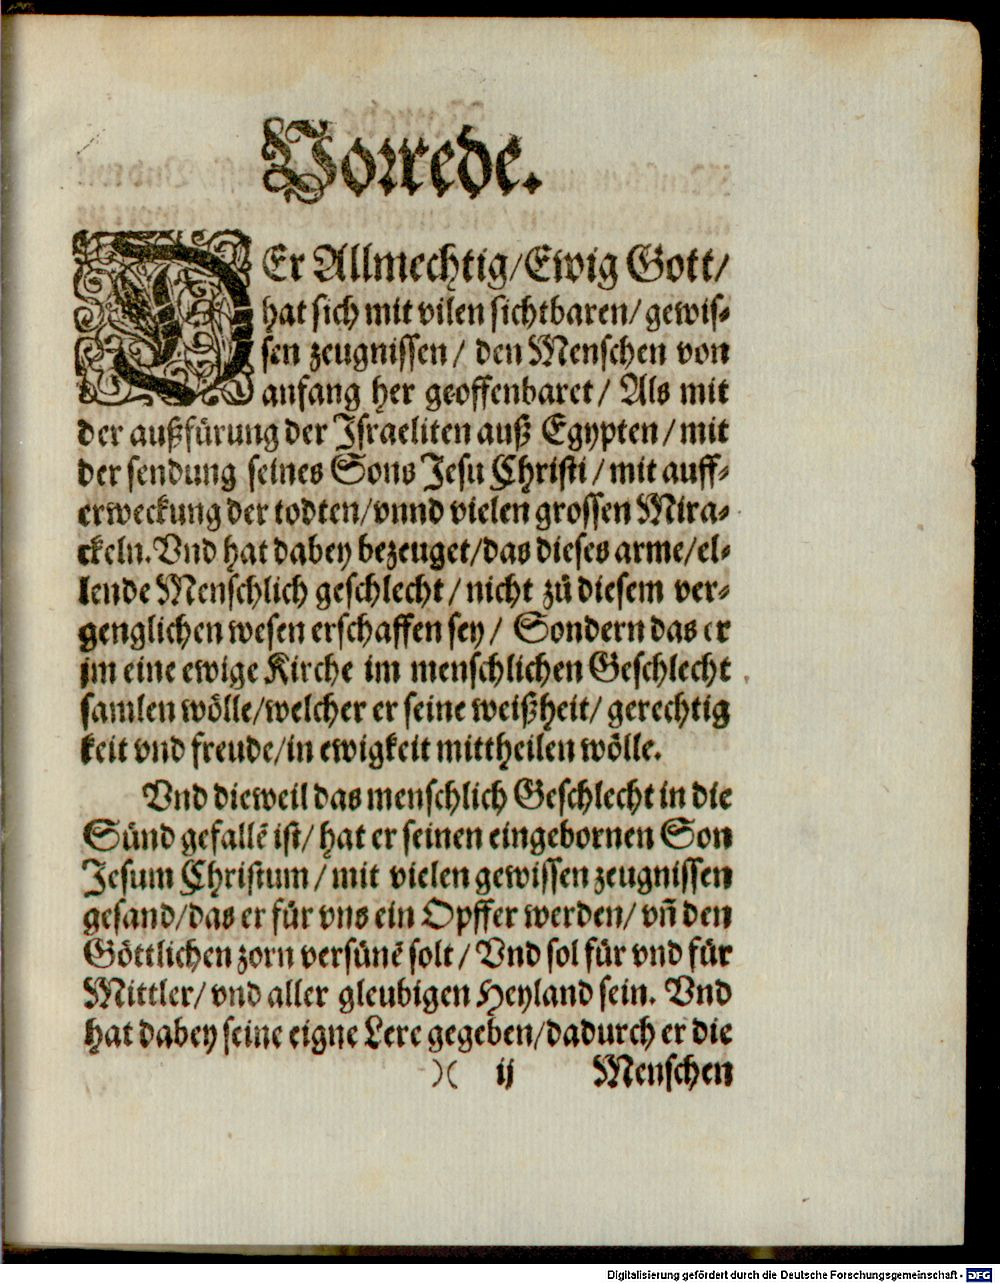 Vorrede.
DEr Allmechtig/Ewig Gott/
hat sich mit vilen sichtbaren/ gewis-
sen zeugnissen/ den Menschen von
anfang her geoffenbaret/ Als mit
der außfürung der Israeliten auß Egypten/mit
der sendung seines Sons Jesu Christi/mit auff-
erweckung der todten/vnnd vielen grossen Mira-
ckeln. Vnd hat dabey bezeuget/das dieses arme/el-
lende Menschlich geschlecht/nicht zů diesem ver-
genglichen wesen erschaffen sey/ Sondern das er
jm eine ewige Kirche im menschlichen Geschlecht
samlen wölle/welcher er seine weißheit/ gerechtig
keit vnd freude/in ewigkeit mittheilen wölle.
Vnd dieweil das menschlich Geschlecht in die
Sünd gefallẽ ist/ hat er seinen eingebornen Son
Jesum Christum/mit vielen gewissen zeugnissen
gesand/das er für vns ein Opffer werden/ vñ den
Göttlichen zorn versünẽ solt/ Vnd sol für vnd für
Mittler/ vnd aller gleubigen Heyland sein. Vnd
hat dabey seine eigne Lere gegeben/dadurch er die
)( ij Menschen
Digitalisierung gefördert durch die Deutsche Forschungsgemeinschaft - DFG